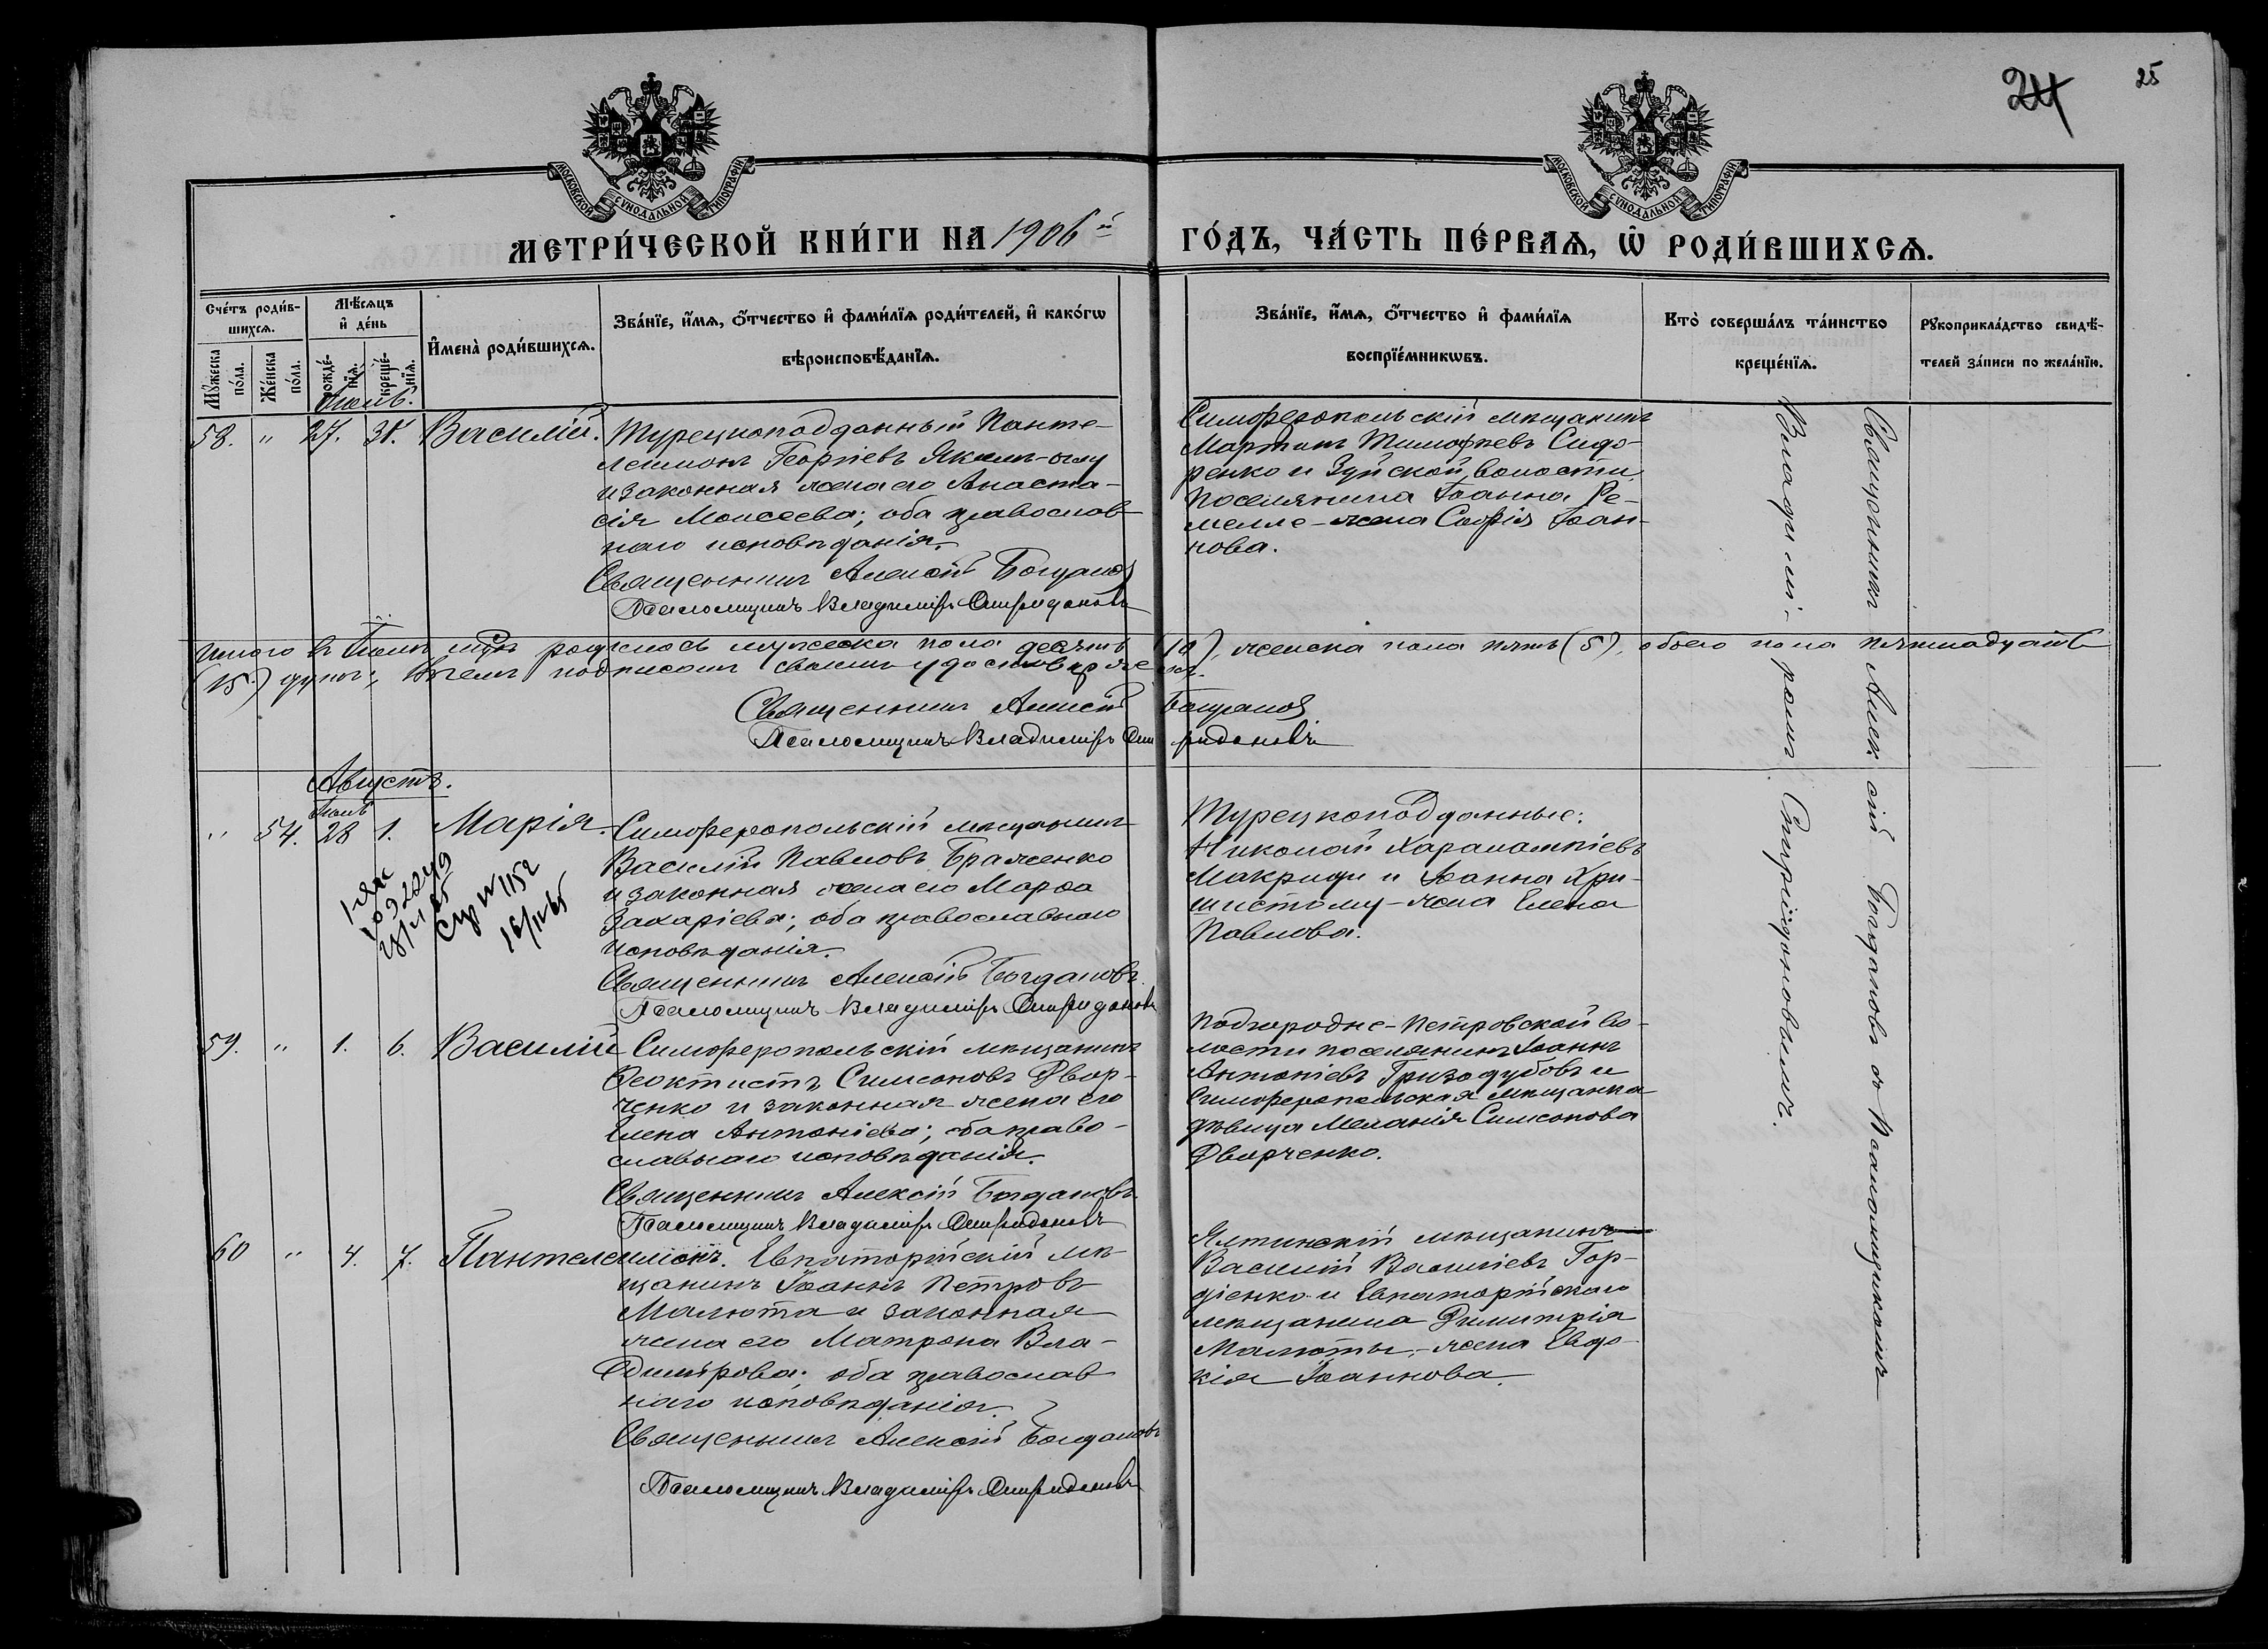 24
25
МОСКОВСКОЙ СѴНОДАЛЬНОЙ ТИПОГРАФІИ
МОСКОВСКОЙ СѴНОДАЛЬНОЙ ТИПОГРАФІИ
МЕТРИ́ЧЕСКОЙ КНИ́ГИ НА 1906й ГО́ДЪ, ЧА́СТЬ ПЕ́РВАѦ, Ѡ РОДИ́ВШИХСѦ.
Сче́тъ роди́в-
шихсѧ.
Мꙋ́жеска по́ла.
Же́нска по́ла.
Мѣ́сѧцъ
и де́нь
рожде́-
нїѧ.
креще́-
нїѧ.
Имена̀ роди́вшихсѧ.
Зва́нїе, и́мѧ, ѻ́тчество и фами́лїѧ роди́телей, и како́гѡ
вѣроисповѣ́данїѧ.
Зва́нїе, и́мѧ, ѻ́тчество и фами́лїѧ
воспрїе́мникѡвъ.
Кто̀ соверша́лъ та́инство
креще́нїѧ.
Рꙋкоприкла́дство свидѣ́-
телей за́писи по жела́нїю.
Іюль.
58. " 27. 31. Василій.
Турецкоподданный Панте-
леимонъ Георгіевъ Якимъ-оглу
и законная жена его Анаста-
сія Моисеева; оба православ-
наго исповѣданія.
Священникъ Алексій Богданов
Псаломщикъ Владиміръ Спиридоновъ
Симферопольскій мѣщанинъ
Мартинъ Тимофеевъ Сидо-
ренко и Зуйской волости
поселянина Іоанна Ре-
мелле - жена Софія Іоан-
нова.
Итого въ Іюлѣ мцѣ родилось мужеска пола десять (10), женска пола пять (5), обоего пола пятнадцать
(15) душъ; въ чемъ подписомъ своимъ удостовѣряемъ.
Священникъ Алексій Богданов
Псаломщикъ Владиміръ Спиридоновъ
Августъ.
Іюль
" 54. 28 1. Марія.
Симферопольскій мѣщанинъ
Василій Павловъ Браженко
и законная жена его Марѳа
Захаріева; оба православнаго
исповѣданія.
Священникъ Алексій Богдановъ.
Псаломщикъ Владиміръ Спиридоновъ
Турецкоподданные:
Николай Харалампіевъ
Макриди и Іоанна Хри-
шистому - жена Елена
Павлова.
1-ЯК
№ 1152
59. " 1. 6. Василій
Симферопольскій мѣщанинъ
Ѳеоктистъ Симеоновъ Двор-
ченко и законная жена его
Елена Антоніева; оба право-
славнаго исповѣданія.
Священникъ Алексій Богдановъ.
Псаломщикъ Владиміръ Спиридоновъ
Подгородне-Петровской во-
лости поселянинъ Іоаннъ
Антоніевъ Гризодубовъ и
Симферопольская мѣщанка
дѣвица Меланія Симеонова
Дворченко.
60 " 4. 7. Пантелеимонъ.
Евпаторійскій мѣ-
щанинъ Іоаннъ Петровъ
Малюта и законная
жена его Матрона Вла-
димірова; оба православ
наго исповѣданія.
Священникъ Алексій Богдановъ
Псаломщикъ Владиміръ Спиридоновъ
Ялтинскій мѣщанинъ
Василій Васильевъ Гор-
діенко и Евпаторійскаго
мѣщанина Димитрія
Малюты, - жена Евдо-
кія Іоаннова.
Священникъ Алексій Богдановъ съ Псаломщикомъ
Владиміромъ Спиридоновымъ.